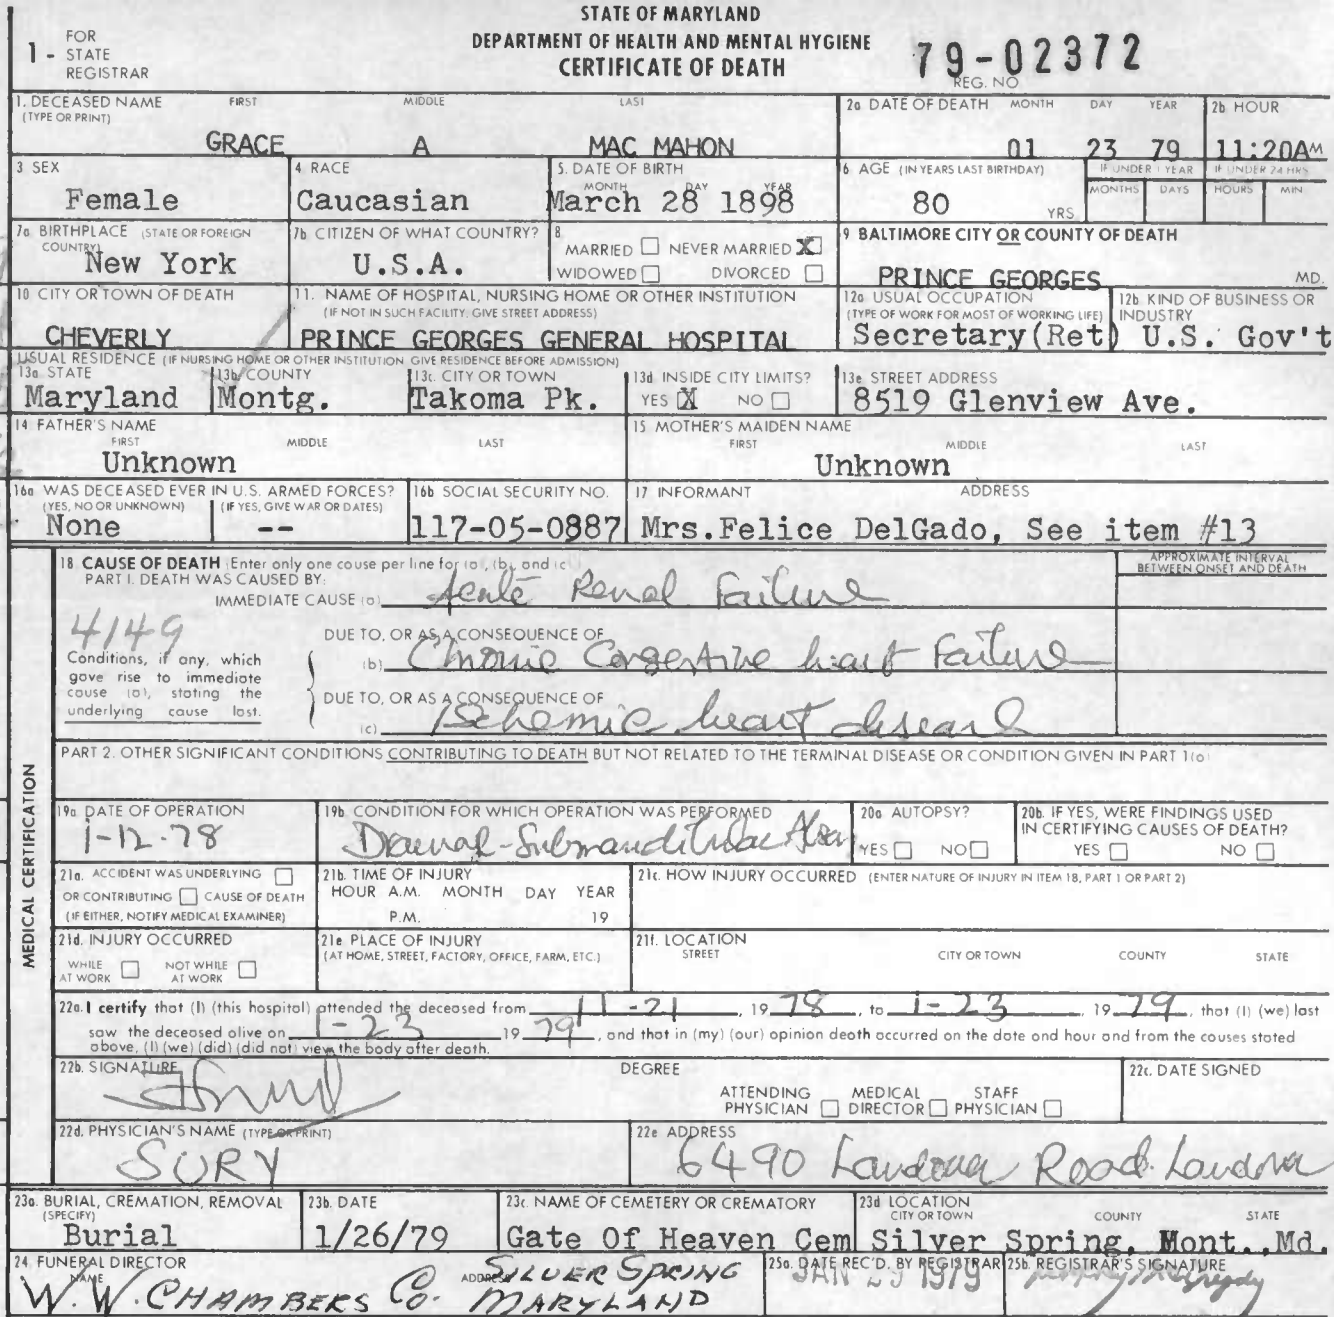 STATE OF MARYLAND
DEPARTMENT OF HEALTH AND MENTAL HYGIENE
CERTIFICATE OF DEATH
1 - FOR STATE REGISTRAR
79-02372
REG. NO
1. DECEASED NAME FIRST MIDDLE LAST
(TYPE OR PRINT)
GRACE A MAC MAHON
2a DATE OF DEATH MONTH DAY YEAR
01 23 79
2b HOUR
11:20AM
3 SEX
Female
4 RACE
Caucasian
5. DATE OF BIRTH
MONTH DAY YEAR
March 28 1898
6 AGE (IN YEARS LAST BIRTHDAY)
80 YRS
IF UNDER 1 YEAR
MONTHS DAYS
IF UNDER 24 HRS
HOURS MIN
7a BIRTHPLACE (STATE OR FOREIGN COUNTRY)
New York
7b CITIZEN OF WHAT COUNTRY?
U.S.A.
8
MARRIED NEVER MARRIED X
WIDOWED DIVORCED
9 BALTIMORE CITY OR COUNTY OF DEATH
PRINCE GEORGES MD.
10 CITY OR TOWN OF DEATH
CHEVERLY
11. NAME OF HOSPITAL, NURSING HOME OR OTHER INSTITUTION
(IF NOT IN SUCH FACILITY, GIVE STREET ADDRESS)
PRINCE GEORGES GENERAL HOSPITAL
12a USUAL OCCUPATION
(TYPE OF WORK FOR MOST OF WORKING LIFE)
Secretary(Ret)
12b. KIND OF BUSINESS OR INDUSTRY
U.S. Gov't
USUAL RESIDENCE (IF NURSING HOME OR OTHER INSTITUTION GIVE RESIDENCE BEFORE ADMISSION)
13a STATE
Maryland
13b. COUNTY
Montg.
13c. CITY OR TOWN
Takoma Pk.
13d INSIDE CITY LIMITS?
YES X NO
13e STREET ADDRESS
8519 Glenview Ave.
14 FATHER'S NAME
FIRST MIDDLE LAST
Unknown
15 MOTHER'S MAIDEN NAME
FIRST MIDDLE LAST
Unknown
16a WAS DECEASED EVER IN U.S. ARMED FORCES?
(YES, NO OR UNKNOWN) (IF YES, GIVE WAR OR DATES)
None --
16b SOCIAL SECURITY NO.
117-05-0887
17 INFORMANT ADDRESS
Mrs.Felice DelGado, See item #13
18 CAUSE OF DEATH (Enter only one cause per line for (a), (b), and (c)
PART I. DEATH WAS CAUSED BY:
APPROXIMATE INTERVAL BETWEEN ONSET AND DEATH
IMMEDIATE CAUSE (a) Acute Renal Failure
4149
Conditions, if any, which gave rise to immediate cause (a), stating the underlying cause last.
DUE TO, OR AS A CONSEQUENCE OF
(b) Chronic Congestive heart Failure
DUE TO, OR AS A CONSEQUENCE OF
(c) Ischemic heart disease
PART 2. OTHER SIGNIFICANT CONDITIONS CONTRIBUTING TO DEATH BUT NOT RELATED TO THE TERMINAL DISEASE OR CONDITION GIVEN IN PART 1(a)
MEDICAL CERTIFICATION
19a DATE OF OPERATION
1-12-78
19b CONDITION FOR WHICH OPERATION WAS PERFORMED
20a AUTOPSY?
YES NO
20b. IF YES, WERE FINDINGS USED IN CERTIFYING CAUSES OF DEATH?
YES NO
21a. ACCIDENT WAS UNDERLYING
OR CONTRIBUTING CAUSE OF DEATH
(IF EITHER, NOTIFY MEDICAL EXAMINER)
21b. TIME OF INJURY
HOUR A.M. MONTH DAY YEAR
P.M. 19
21c. HOW INJURY OCCURRED (ENTER NATURE OF INJURY IN ITEM 18, PART 1 OR PART 2)
21d. INJURY OCCURRED
WHILE AT WORK NOT WHILE AT WORK
21e PLACE OF INJURY
(AT HOME, STREET, FACTORY, OFFICE, FARM, ETC.)
21f. LOCATION
STREET CITY OR TOWN COUNTY STATE
22a. I certify that (I) (this hospital) attended the deceased from 11-21, 19 78, to 1-23, 19 79, that (I) (we) last
saw the deceased alive on 1-23 19 79, and that in (my) (our) opinion death occurred on the date and hour and from the causes stated
above, (I) (we) (did) (did not) view the body after death.
22b. SIGNATURE
DEGREE
ATTENDING PHYSICIAN MEDICAL DIRECTOR STAFF PHYSICIAN
22c. DATE SIGNED
22d. PHYSICIAN'S NAME (TYPE OR PRINT)
SURY
22e ADDRESS
6490 Landover Road. Landover
23a. BURIAL, CREMATION, REMOVAL
(SPECIFY)
Burial
23b. DATE
1/26/79
23c. NAME OF CEMETERY OR CREMATORY
Gate Of Heaven Cem
23d LOCATION
CITY OR TOWN COUNTY STATE
Silver Spring, Mont., Md.
24. FUNERAL DIRECTOR
NAME
W.W. CHAMBERS Co.
ADDRESS
SILVER SPRING
MARYLAND
25a. DATE REC'D. BY REGISTRAR
JAN 1979
25b. REGISTRAR'S SIGNATURE